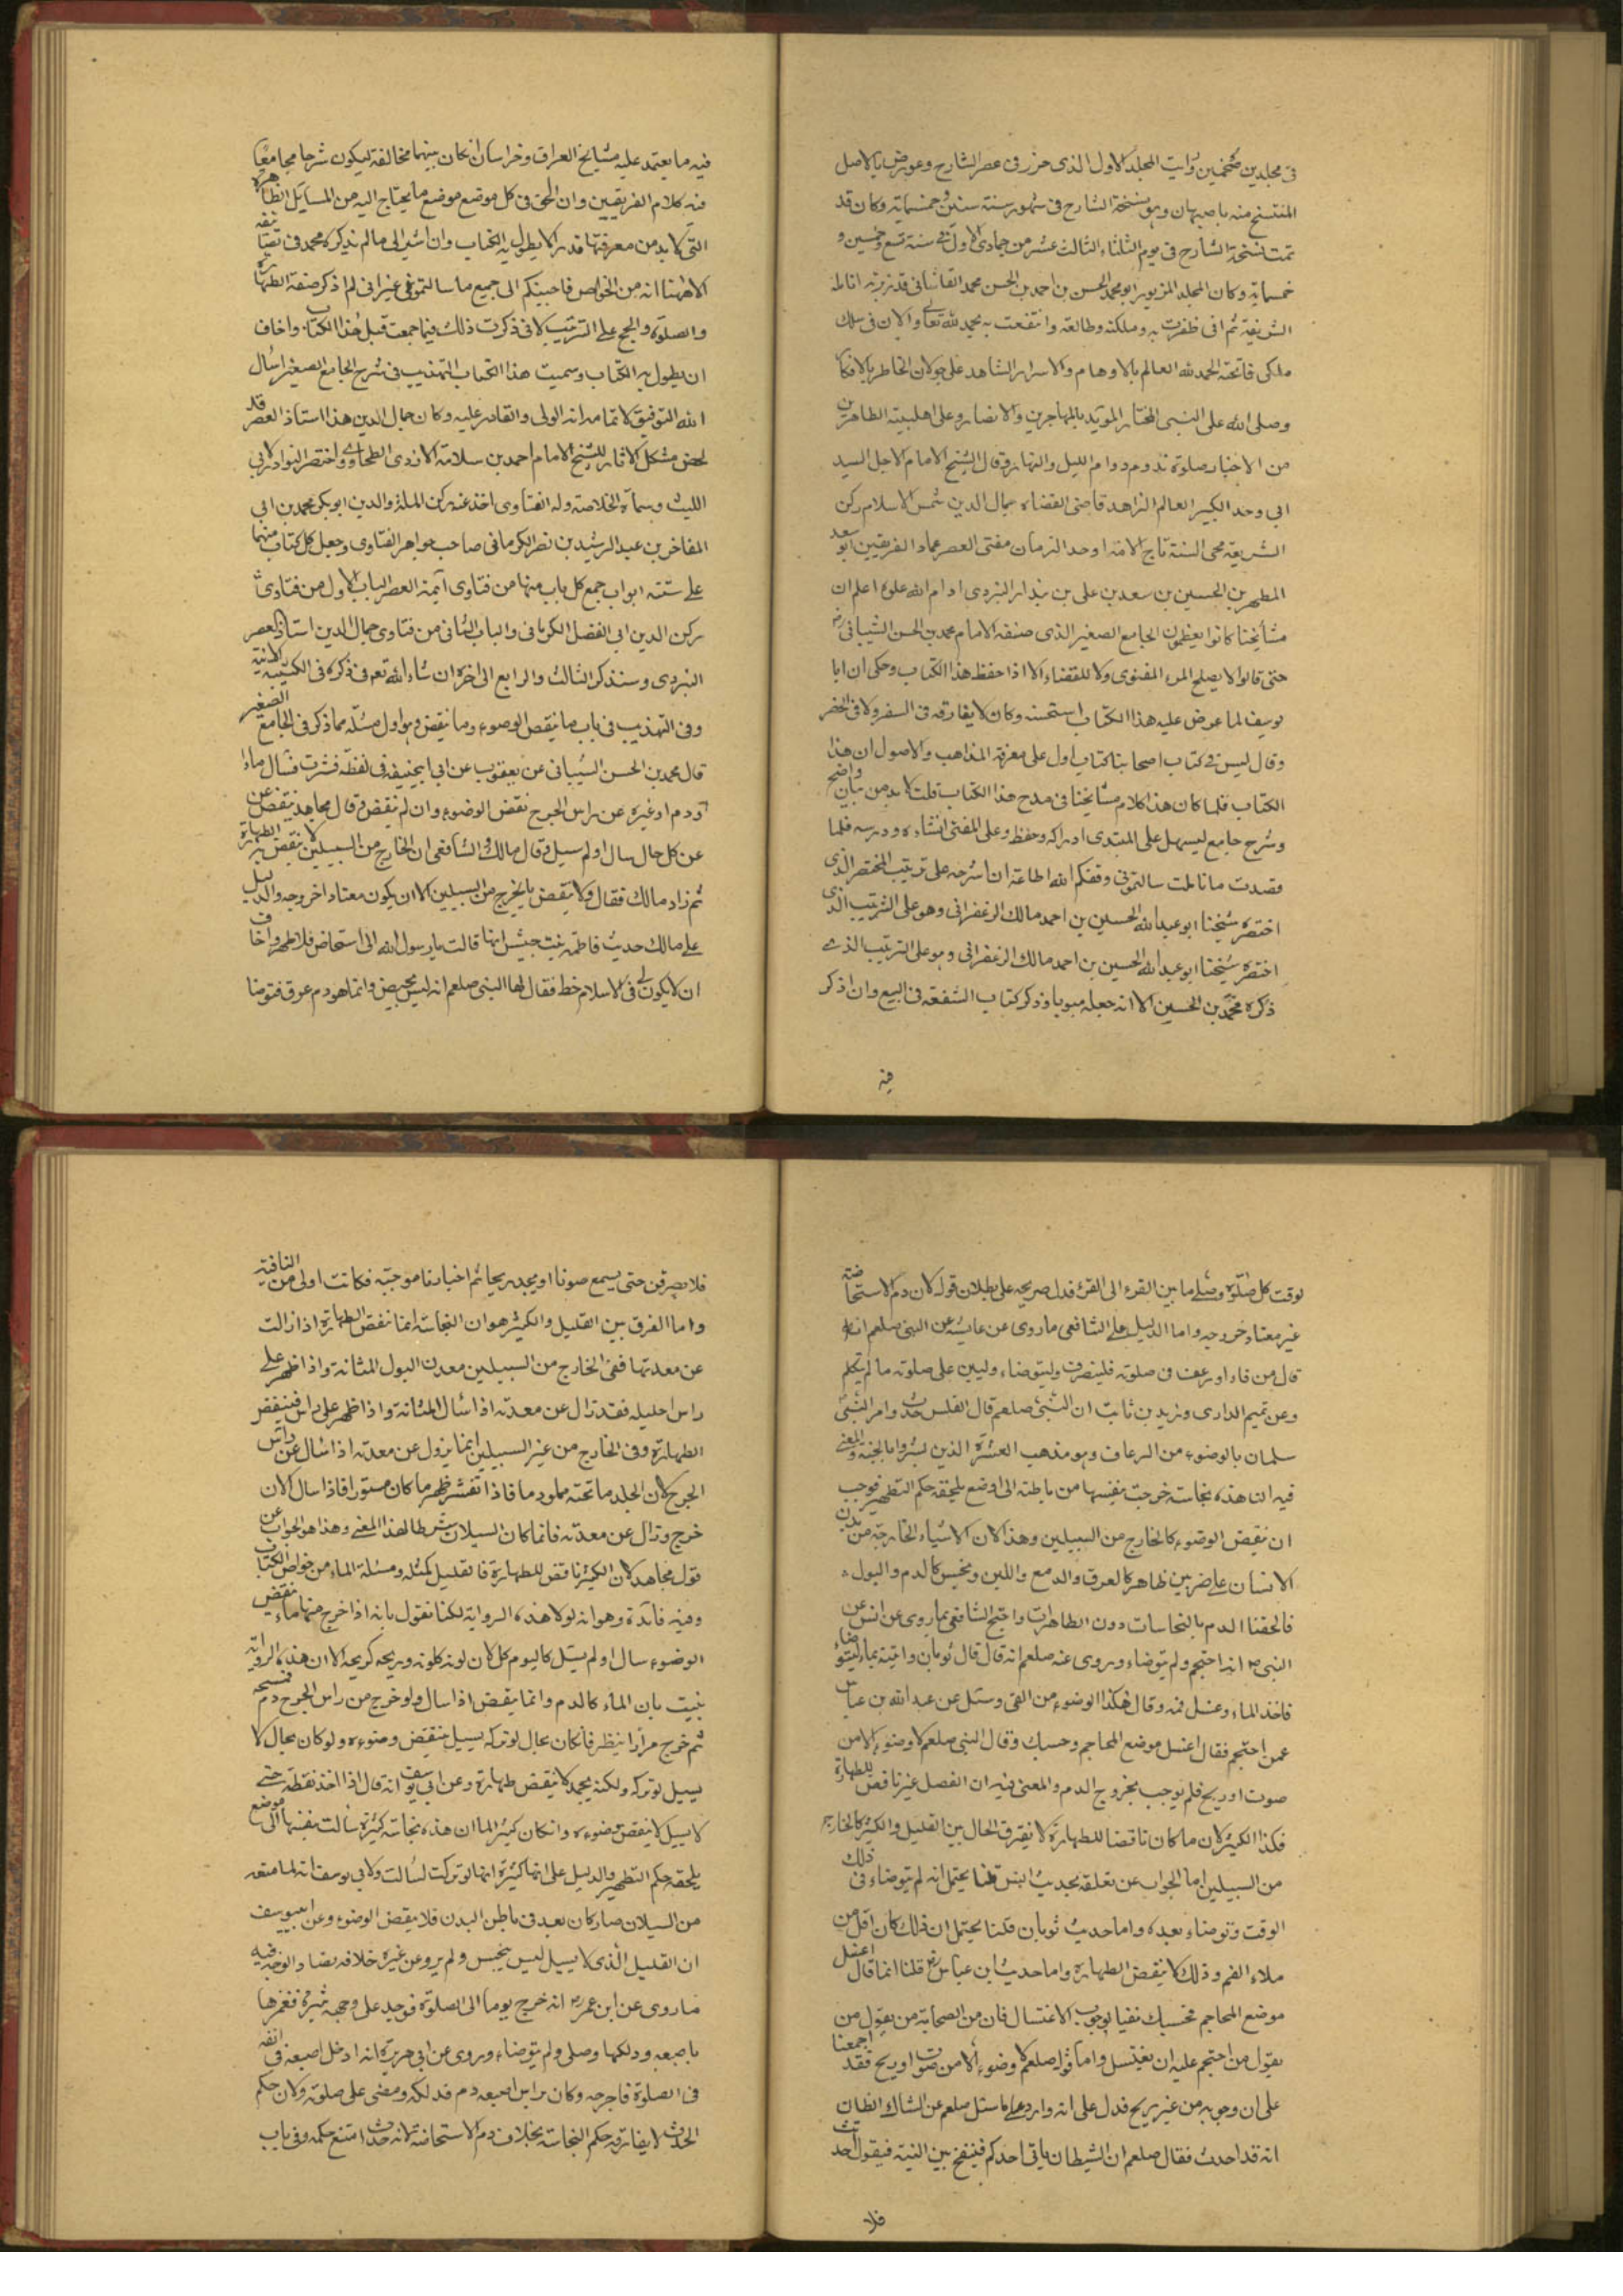 فى مجلدين ضخمين رأيت المجلد الاول الذى حرر فى عصر الشارح وعورض بالاصل
المنتسخ منه باصبهان وهو نسخة الشارح فى شهور سنة ستين وخمسماية وكان قد
تمت نسخة الشارح فى يوم الثلثاء الثالث عشر من جمادى الاول سنة تسع وخمسين و
خمساية وكان المجلد المزبور ابو محمد الحسن بن احمد بن الحسن محمد القاشانى قد زبر به انامله
الشريفة ثم انى ظفرت به وملكته وطالعته وانتفعت به بحمد لله تعالى والان فى سلك
ملكى فاتحته الحمد لله العالم بالاوهام والاسرار الشاهد على جولان الخاطر بالافكا
وصلى الله على النبى المختار المويد بالمهاجرين والانصار وعلى اهلبيته الطاهرين
من الاخيار صلوة تدوم دوام الليل والنهار وقال الشيخ الامام الاجل السيد
ابى وحد الكبير العالم الزاهد قاضى القضاه جمال الدين شمس الاسلام ركن
الشريعة محى السنة تاج الامة اوحد الزمان مفتى العصر عماد الفريقين ابو سعد
المطهر بن الحسين بن سعد بن على بن بندار اليزدى ادام الله علوه اعلم ان
مشايخنا كانوا يعظمون الجامع الصغير الذى صنفه الامام محمد بن الحسن الشيبانى
حتى قالوا لا يصلح المرء للفتوى ولا للقضاء الا اذا حفظ هذا الكتاب وحكى ان ابا
يوسف لما عرض عليه هذا الكتاب استحسنه وكان لا يفارقه فى السفر ولا فى الحضر
وقال ليس فى كتاب اصحابنا كتاب اول على معرفة المذاهب والاصول ان هذا
الكتاب فلما كان هذا كلام مشايخنا فى مدح هذا الكتاب قلت لابد من بيان واضح
وشرح جامع ليسهل على المبتدى ادراكه وحفظ وعلى المفتى انشاده ودرسه فلما
قصدت ما تاملت سالتمونى وفقكم الله اطاعة ان اشرحه على ترتيب المختصر الذى
اختصره شيخنا ابو عبد الله الحسين بن احمد مالك الزعفرانى وهو على الترتيب الذى
اختصره شيخنا ابو عبد الله الحسين بن احمد مالك الزعفرانى وهو على الترتيب الذى
ذكره محمد بن الحسين الا انه جعله مبوبا وذكر كتاب الشفعة فى البيع وان اذكر
فيه
فيه ما يعتمد عليه مشايخ العراق وخراسان ان كان بينهما مخالفة ليكون شرحا مجامعا
فيه كلام الفريقين وان الحق فى كل موضع موضع ما يحتاج اليه من المسايل الظاهرة
التى لابد من معرفتها قدر لا يطول به الكتاب وان اشير الى ما لم يذكره محمد فى تصنيفه
الا هنا انه من الخواص فاجبتكم الى جميع ما سالتمونى غير انى لم اذكر صفة الطهارة
والصلوة والحج على الترتيب لانى ذكرت ذلك فيما جمعت قبل هذا الكتاب واخاف
ان يطول به الكتاب وسميت هذا الكتاب التهذيب فى شرح الجامع الصغير اسال
الله التوفيق لاتمامه انه الولى والقادر عليه وكان جمال الدين هذا استاذ العصر قد
لخص مشكل الاثار للشيخ الامام احمد بن سلامة الازدى الطحاوى واختصر النوادر لابى
الليث وسماه الخلاصة وله الفتاوى اخذ عنه ركن الملة والدين ابو بكر محمد بن ابى
المفاخر بن عبد الرشيد بن نصر الكرمانى صاحب جواهر الفتاوى وجعل كل كتاب منهما
على ستة ابواب جمع كل باب منها من فتاوى ايمة العصر الباب الاول من فتاوى
ركن الدين ابى الفضل الكرمانى والباب الثانى من فتاوى جمال الدين استاذ العصر
اليزدى وسنذكر الثالث والرابع الى اخره ان شاء الله تعم فى ذكره فى الكتيبة الاتية
وفى التهذيب فى باب ما ينقض الوضوء وما ينقض وهو اول مسئلة مما ذكر فى الجامع الصغير
قال محمد بن الحسن الشيبانى عن يعقوب عن ابى ابيحنيفة فى نفطة قشرت فسال ماء
او دم او غيره عن راس الجرح نقض الوضوء وان لم ينقض وقال مجاهد ينقض عن
عن كل حال سال او لم يسيل وقال مالك والشافعى ان الخارج من السبيلين لا ينقض به الطهارة
ثم زاد مالك فقال ولا ينقض ما يخرج من السبيلين الا ان يكون معتادا خروجه والدليل
على مالك حديث فاطمة بنت جيش انها قالت يا رسول الله انى استحاض فلا اطهر واخاف
ان لا يكون لى فى الاسلام خط فقال لها النبى صلعم انه ليس بحيض وانما هو دم عرق فتوضا
لوقت كل صلوة وصلى ما بين القرء الى القرء فدل صريحه على بطلان قوله لان دم الاستحاضة
غير معتاد خروجه واما الدليل على الشافعى ما روى عن عايشة عن النبى صلعم انه
قال من قاء او رعف فى صلوته فلينصرف وليتوضاء وليبن على صلوته ما لم يتكلم
وعن تميم الدارى وزيد بن ثابت ان النبى صلعم قال القلس حدث وامر النبى
سلمان بالوضوء من الرعاف وهو مذهب العشرة الذين بشروا بالجنة والمعنى
فيه ان هذه نجاسة خرجت بنفسها من باطنه الى اوضع يلحقه حكم التطهير فوجب
ان ينقض الوضوء كالخارج من السبيلين وهذا لان الاشياء الخارجة من بدن
الانسان على ضربين ظاهر كالعرق والدمع واللبن ونجس كالدم والبول
فالحقنا الدم بالنجاسات دون الطاهرات واحتج الشافعى بما روى عن انس عن
النبى انه احتجم ولم يتوضاء وروى عنه صلعم انه قال قال ثوبان واتيته بماء ليتوضاء
فاخذ الماء وغسل فمه وقال هكذا الوضوء من القى وسئل عن عبد الله بن عباس
عمن احتجم فقال اغسل موضع المحاجم وحسبك وقال النبى صلعم لا وضوء الا من
صوت او ريح فلم يوجب بخروج الدم والمعنى فيه ان الفصل غير ناقض للطهارة
فكذا الكثير لان ما كان ناقضا للطهارة لا يفترق الحال بين القليل والكثير كالخارج
من السبيلين اما الجواب عن تعلقه بحديث انس قلنا يحتمل انه لم يتوضاء فى ذلك
الوقت وتوضاء بعده واما حديث ثوبان قلنا يحتمل ان ذلك كان اقل من
ملاء الفم وذلك لا ينقض الطهارة واما حديث ابن عباس قلنا انما قال اغسل
موضع المحاجم فحسبك نفيا لوجوب الاغتسال فان من الصحابة من يقول من
يقول من احتجم عليه ان يغتسل واما قوله صلعم لا وضوء الا من صوت او ريح فقد اجمعنا
على ان وجوبه من غير ريح فدل على انه وارد على ما سئل صلعم عن الشاك الظان
انه قد احدث فقال صلعم ان الشيطان ياتى احدكم فينفخ بين اليتيه فيقول احدثت
فلا
فلا ينصرفن حتى يسمع صوتا او يجد ريحا ثم اخبارنا موجبة فكانت اولى من النافية
واما الفرق بين القليل والكثير هو ان النجاسة انما تنقض الطهارة اذا زالت
عن معدنها ففى الخارج من السبيلين معدن البول المثانة واذا ظهر على
راس احليله فقد زال عن معدنه اذا سال المثانة واذا ظهر على راس فينقض
الطهارة وفى الخارج من غير السبيلين انما يزول عن معدنه اذا سال عن راس
الجرح لان الجلد ما تحته مملو دما فاذا تقشر ظهر ما كان مستورا فاذا سال الان
خرج وزال عن معدنه فانما كان السيلان شرطا لهذا المعنى وهذا هو الجواب عن
قول مجاهد لان الكثير ناقض للطهارة فالقليل كمثله ومسئلة الماء من خواص الكتاب
وفيه فائدة وهو انه لولا هذه الرواية لكنا نقول بانه اذا خرج منها ماء ينقض
الوضوء سال او لم يسيل كاليوم كل لان لونه كلونه وريحه كريحه الا ان هذه الرواية
يثبت بان الماء كالدم وانما ينقض اذا سال ولو خرج من راس الجرح دم فمسحه
ثم خرج مرارا ينظر فان كان بحال لو تركه يسيل ينقض وضوءه ولو كان بحال لا
يسيل لو تركه ولكنه يجمد لا ينقض طهارة وعن ابى يوسف انه قال اذا اخذ نقطة حتى
لا يسيل لا ينقض وضوءه وان كان كثير الما ان هذه نجاسة كثيرة سالت بنفسها الى موضع
يلحقه حكم التطهير والدليل على انها كثيرة انها لو تركت لسالت ولابى يوسف انه لما منعه
من السيلان صار كان بعد فى باطن البدن فلا ينقض الوضوء وعن ابييوسف
ان القليل الذى لا يسيل ليس بنجس ولم يرو عن غيره خلافه نصا والوجه فيه
ما روى عن ابن عمر انه خرج يوما الى الصلوة فوجد على وجهه بثرة فغمزها
باصبعه ودلكها وصلى ولم يتوضاء وروى عن ابى هريرة انه ادخل اصبعه فى انفه
فى الصلوة فاخرجه وكان براس اصبعه دم فدلكه ومضى على صلوته ولان حكم
الحدث لا يفارقه حكم النجاسة بخلاف دم الاستحاضة لانه حدث امتنع حكمه وفى باب